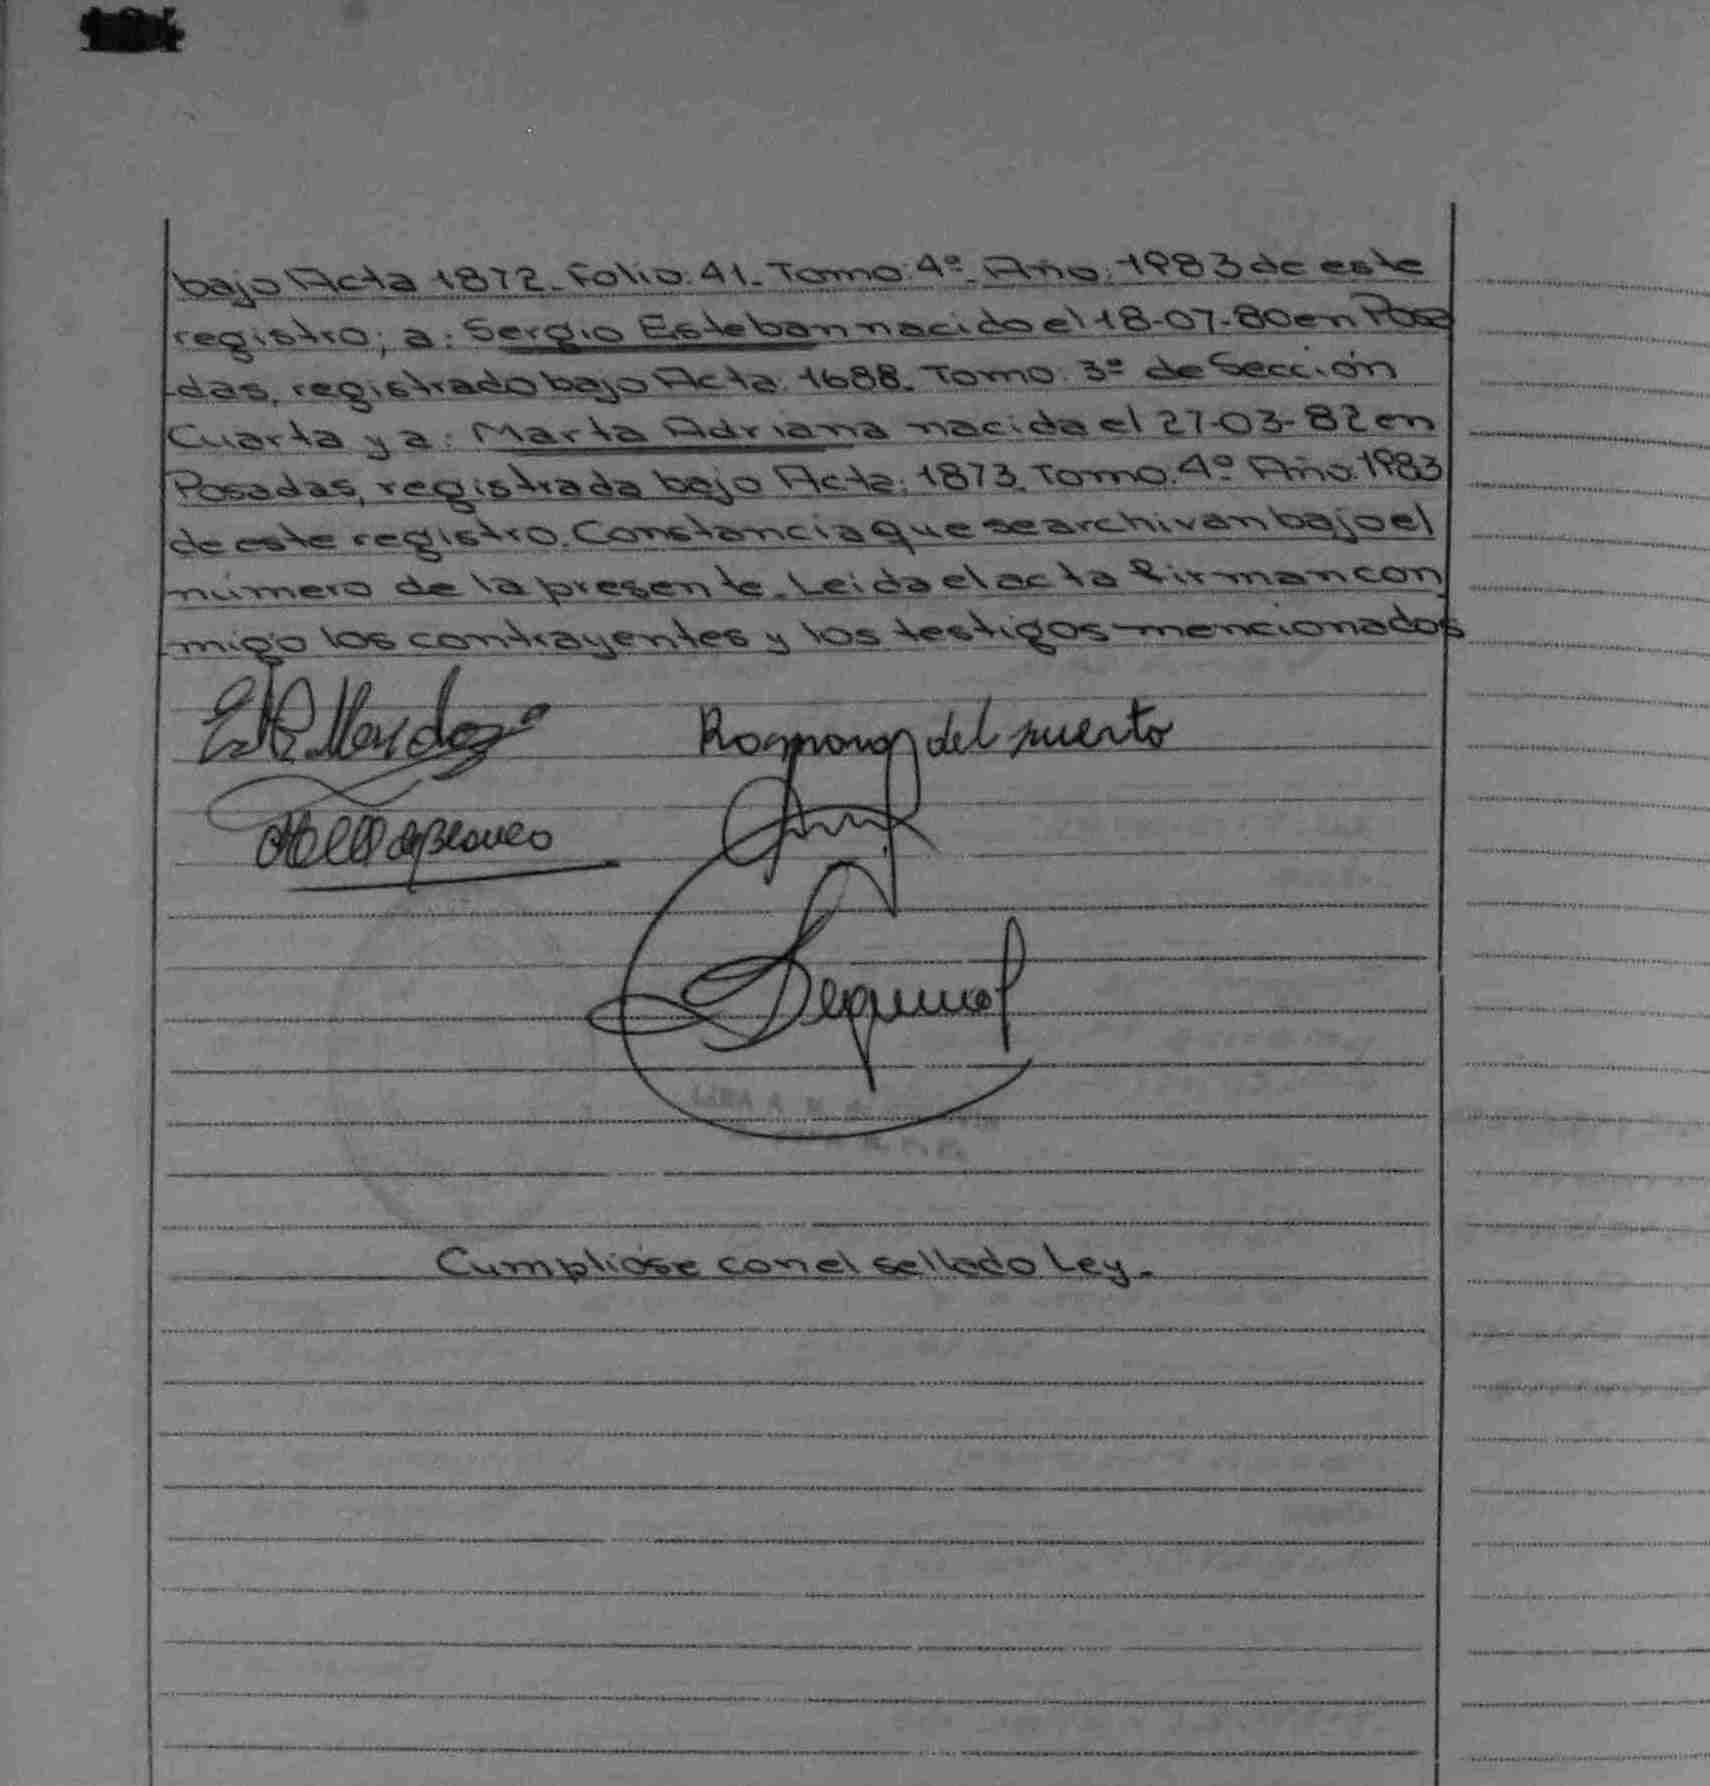 bajo Acta 1872. Folio: 41. Tomo: 4º. Año: 1983 de este
registro; a: Sergio Esteban nacido el 18-07-80 en Posa
das, registrado bajo Acta: 1688. Tomo: 3º de Sección
Cuarta y a: Marta Adriana nacida el 27-03-82 en
Posadas, registrada bajo Acta: 1873. Tomo: 4º Año: 1983
de este registro. Constancia que se archivan bajo el
número de la presente. Leida el acta firman con
migo los contrayentes y los testigos mencionados
del puerto
Cumplióse con el sellado Ley.